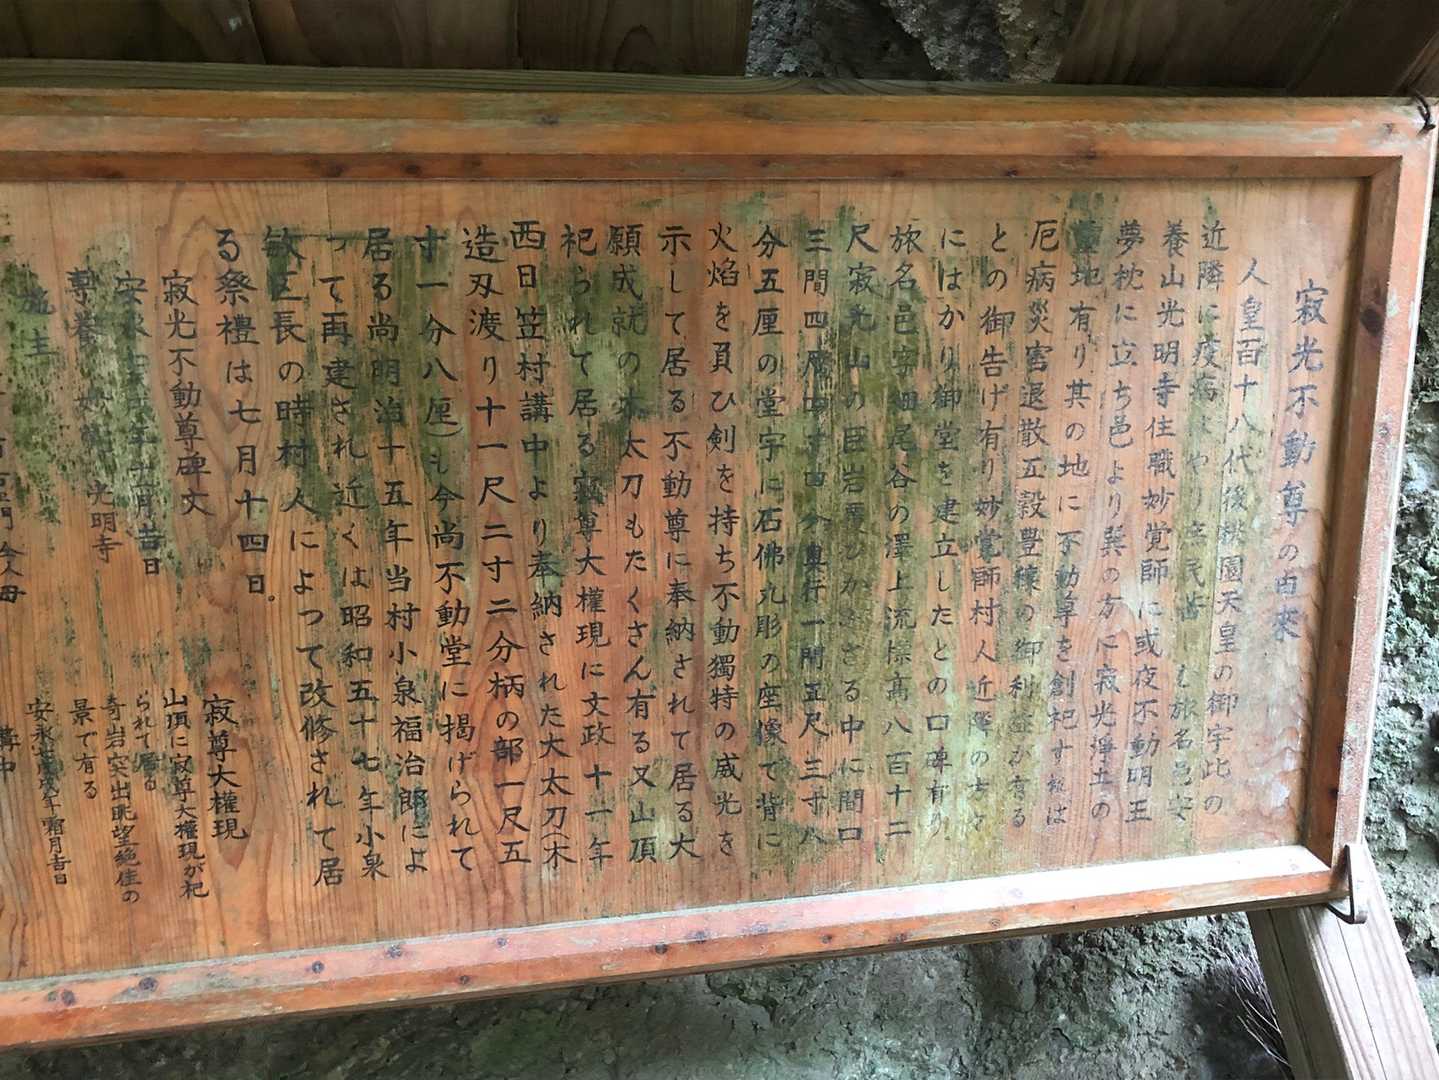 寂光不動尊の由来
人皇百十八代後桃園天皇の御宇此の
近隣に疫病はやり庶民苦しむ旅名邑安
養山光明寺住職妙覚師に或夜不動明王
夢枕に立ち邑より巽の方に寂光淨土の
霊地有り其の地に不動尊を創祀すれば
厄病災害退散五穀豊穣の御利益が有る
との御告げ有り妙覚師村人近隣の
にはかり御堂を建立したとの口碑有り
旅名邑字畑尾谷の澤上流標高八百十二
尺寂光山の巨岩覆ひかぶさる中に間口
三間四尺四寸四分奥行一間五尺三寸八
分五厘の堂宇に石佛丸彫の座像で背に
火焰を負ひ剣を持ち不動獨特の威光を
示して居る不動尊に奉納されて居る大
願成就の木太刀もたくさん有る又山頂
祀られて居る寂尊大權現に文政十一年
西日笠村講中より奉納された大太刀(木
造刃渡り十一尺二寸二分柄の部一尺五
寸一分八厘)も今尚不動堂に揭げられて
居る尚明治十五年当村小泉福治郎によ
って再建され近くは昭和五十七年小泉
敏区長の時村人によつて改修されて居
る祭禮は七月十四日。
寂光不動尊碑文
安永七戊戌年十一月吉日
光明寺
施主
寂尊大權現
山頂に寂尊大權現が祀
られて居る
奇岩突出眺望絶佳の
景で有る
安永七戊戌年霜月吉日
講中